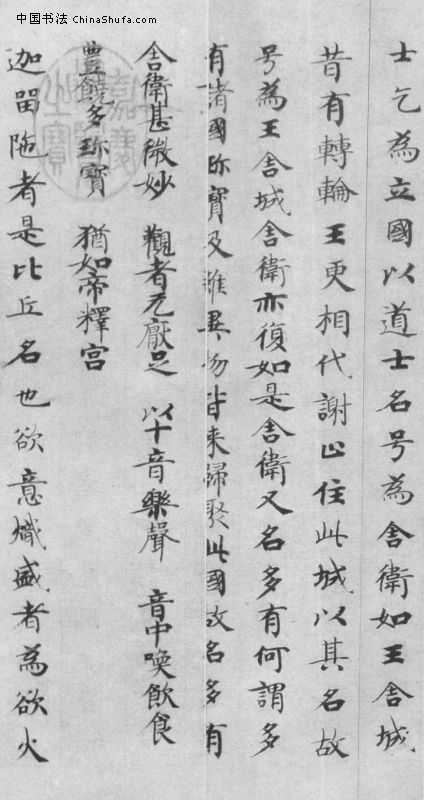 中国书法:ChinaShufa.com
士乞為立國以道士名号為舍衛如王舍城
昔有轉輪王更相代謝止住此城以其名故
号為王舍城舍衛亦復如是舍衛又名多有何謂多
有諸國珎寶及雜異物皆来歸聚此國故名多有
舍衛甚微妙 觀者无厭足 以十音樂聲 音中喚飲食
豊饒多珎寶 猶如帝釋宫
迦留陁者是比丘名也欲意熾盛者為欲火